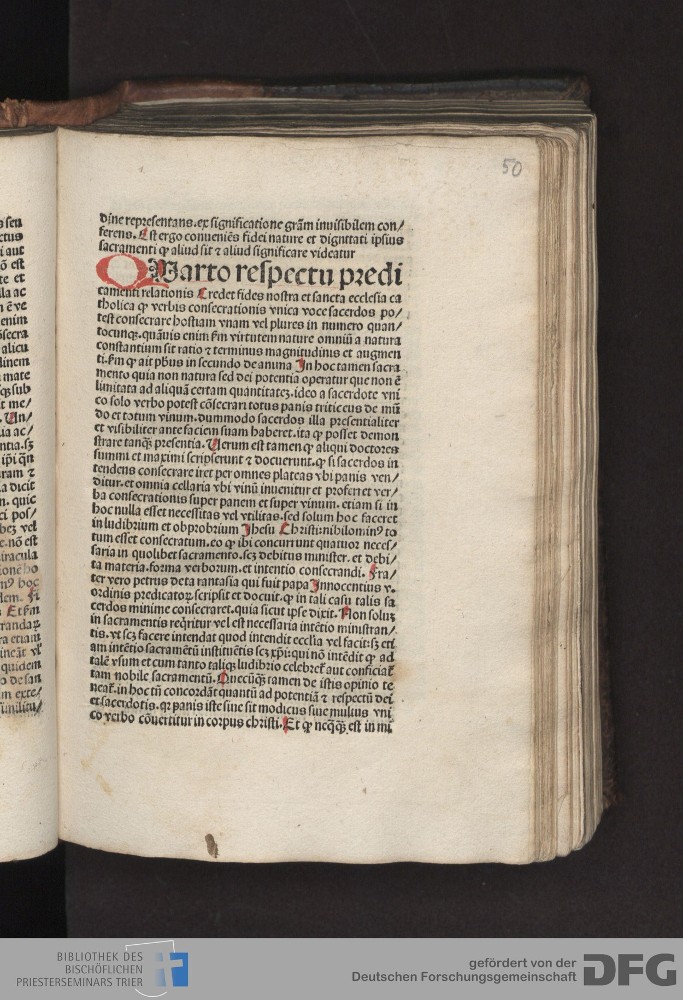 50
dine representans. ex significatione grãm inuisibilem con/
ferens. Est ergo conueniẽs fidei nature et dignitati ipsius
sacramenti ꝙ aliud sit ⁊ aliud significare videatur
QUarto respectu predi
camenti relationis Credet fides nostra et sancta ecclesia ca
tholica ꝙ verbis consecrationis vnica voce sacerdos po/
test consecrare hostiam vnam vel plures in numero quan/
tocunqꝫ. quãuis enim ẞm virtutem nature omniũ a natura
constantium sit ratio ⁊ terminus magnitudinis et augmen
ti. ẞm ꝙ ait pħus in secundo de anima In hoc tamen sacra
mento quia non natura sed dei potentia operatur que non ẽ
limitata ad aliquã certam quantitatẽ. ideo a sacerdote vni
co solo verbo potest cõsecrari totus panis triticeus de mũ
do et totum vinum. dummodo sacerdos illa presentialiter
et visibiliter ante faciem suam haberet. ita ꝙ posset demon
strare tanqꝫ presentia. Uerum est tamen ꝙ aliqui doctores
summi et maximi scripserunt ⁊ docuerunt. ꝙ si sacerdos in
tendens consecrare iret per omnes plateas vbi panis ven/
ditur. et omnia cellaria vbi vinũ inuenitur et proferret ver/
ba consecrationis super panem et super vinum. etiam si in
hoc nulla esset necessitas vel vtilitas. sed solum hoc faceret
in ludibrium et obprobrium Jhesu Christi: nihilominꝰ to
tum esset consecratum. eo ꝙ ibi concurrunt quatuor neces/
saria in quolibet sacramento. scꝫ debitus minister. et debi/
ta materia. forma verborum. et intentio consecrandi. Fra/
ter vero petrus de tarantasia qui fuit papa Innocentius v.
ordinis predicatoꝝ scripsit et docuit. ꝙ in tali casu talis sa
cerdos minime consecraret. quia sicut ipse dixit. Non soluꝫ
in sacramentis reqritur vel est necessaria intẽtio ministran/
tis. vt scꝫ facere intendat quod intendit ecclĩa vel facit: sꝫ eti
am intẽtio sacramẽtũ instituẽtis scꝫ xp̃i: qui nõ intẽdit ꝙ ad
talẽ vsum et cum tanto taliqꝫ ludibrio celebreť aut conficiať
tam nobile sacramentũ. Quecũqꝫ tamen de istis opinio te
neať. in hoc tñ concordãt quantũ ad potentiã ⁊ respectũ dei
et sacerdotis. ꝙ panis iste siue sit modicus siue multus vni
co verbo cõuertitur in corpus christi. Et ꝙ neqꝫ est in mi
BIBLIOTHEK DES
BISCHÖFLICHEN
PRIESTERSEMINARS TRIER
gefördert von der
Deutschen Forschungsgemeinschaft
DFG